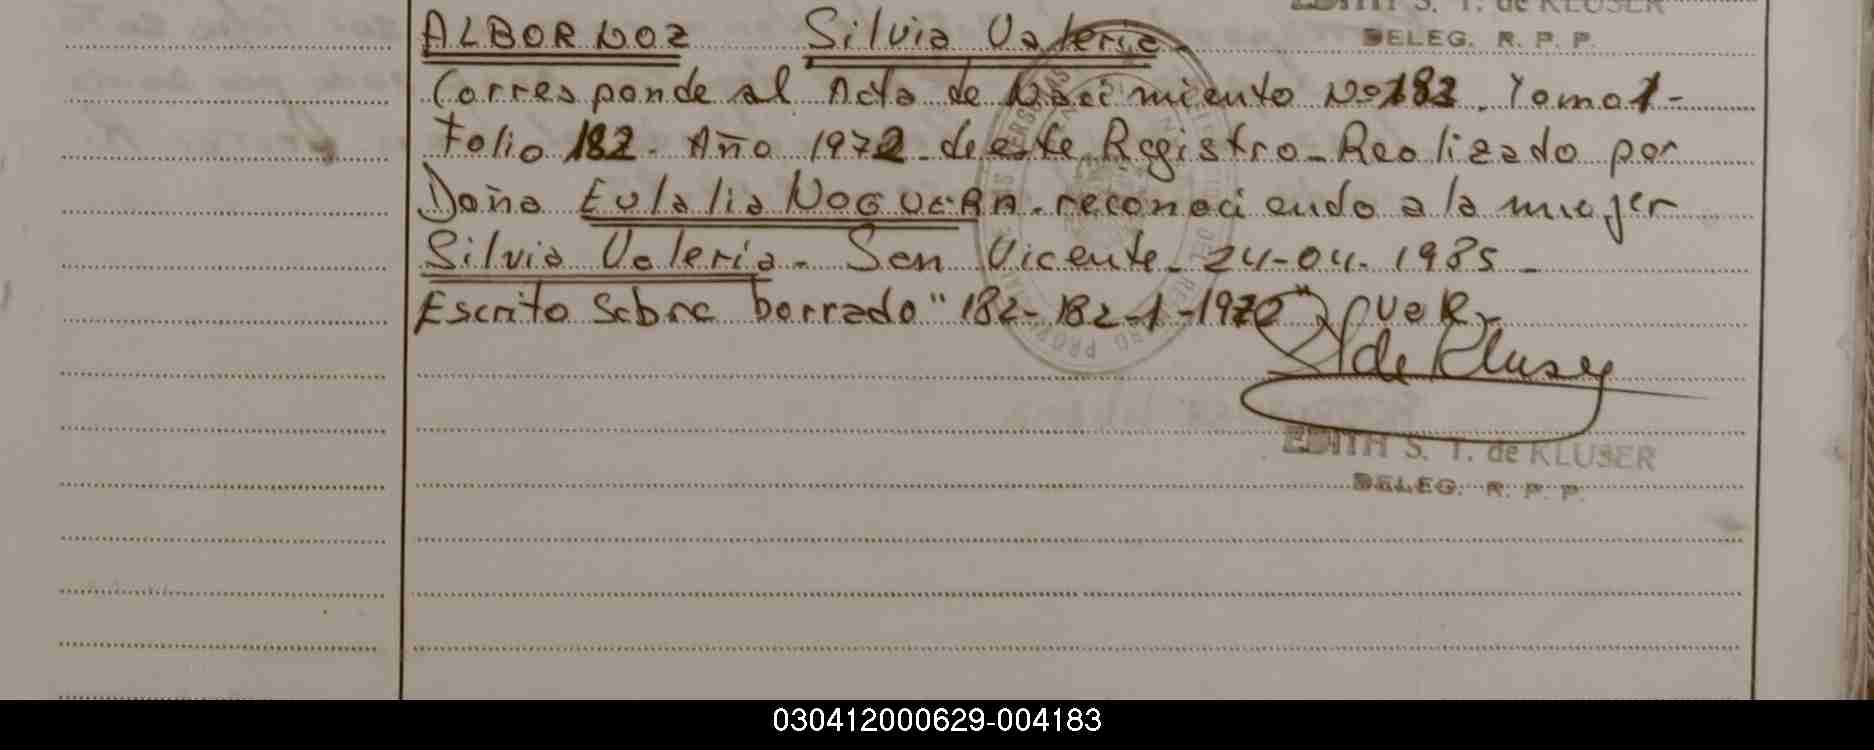 EDITH S. T. de KLUSER
DELEG. R. P. P.
ALBORNOZ Silvia Valeria.
Corresponde al Acta de Nacimiento Nº 182. Tomo 1-
Folio 182. Año 1972 de este Registro - Realizado por
Doña Eulalia NOGUERA. reconociendo a la mujer
Silvia Valeria. San Vicente - 24-04-1985 -
Escrito Sobre borrado "182-182-1-1972"
de Kluser
EDITH S. T. de KLUSER
DELEG. R. P. P.
030412000629-004183